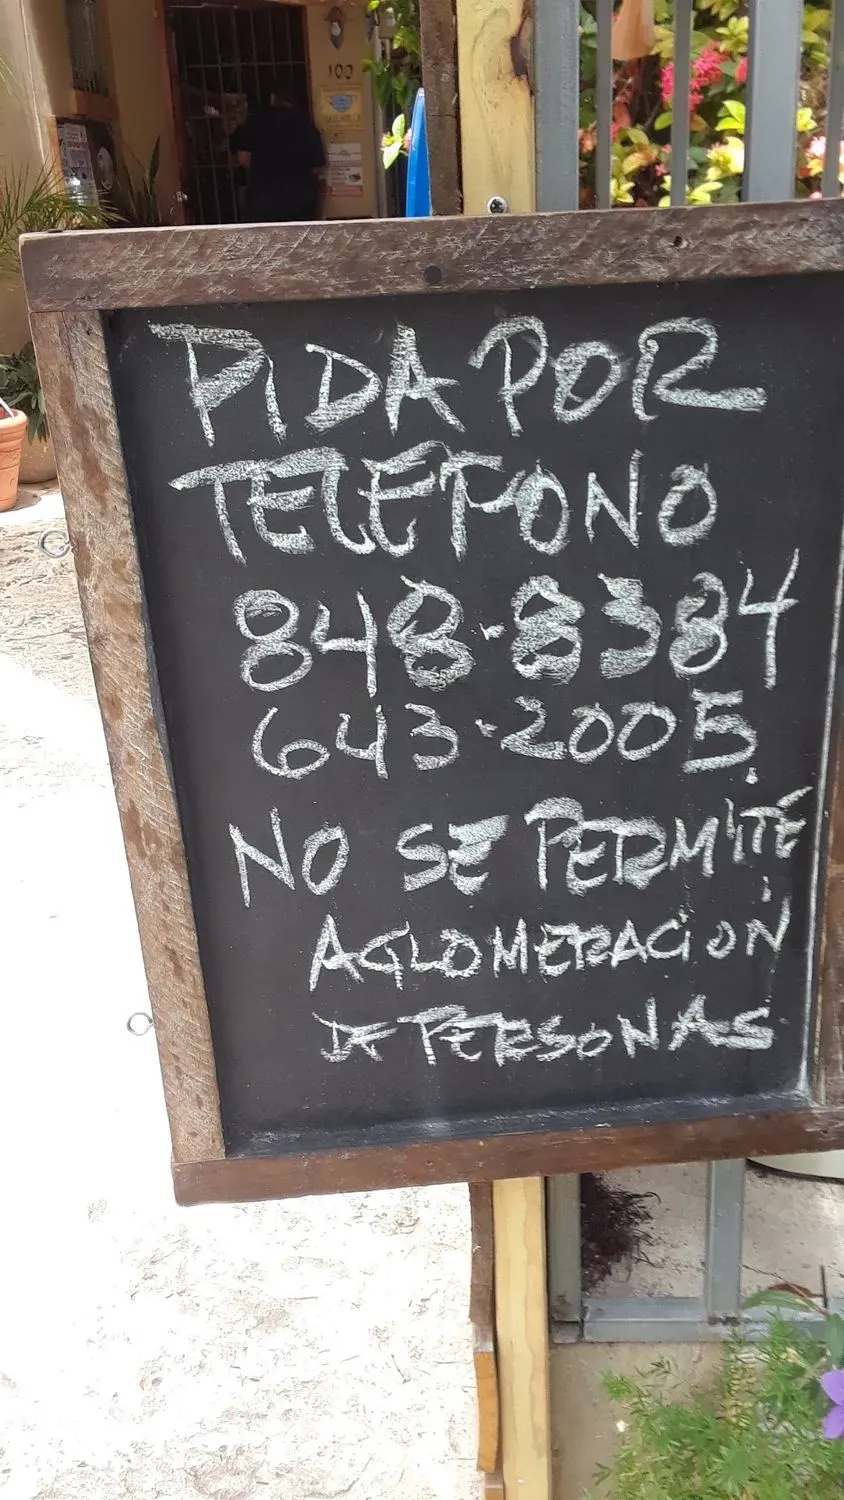 100
PIDA POR
TELEFONO
848-8384
643-2005.
NO SE PERMITE
AGLOMERACION
DE PERSONAS